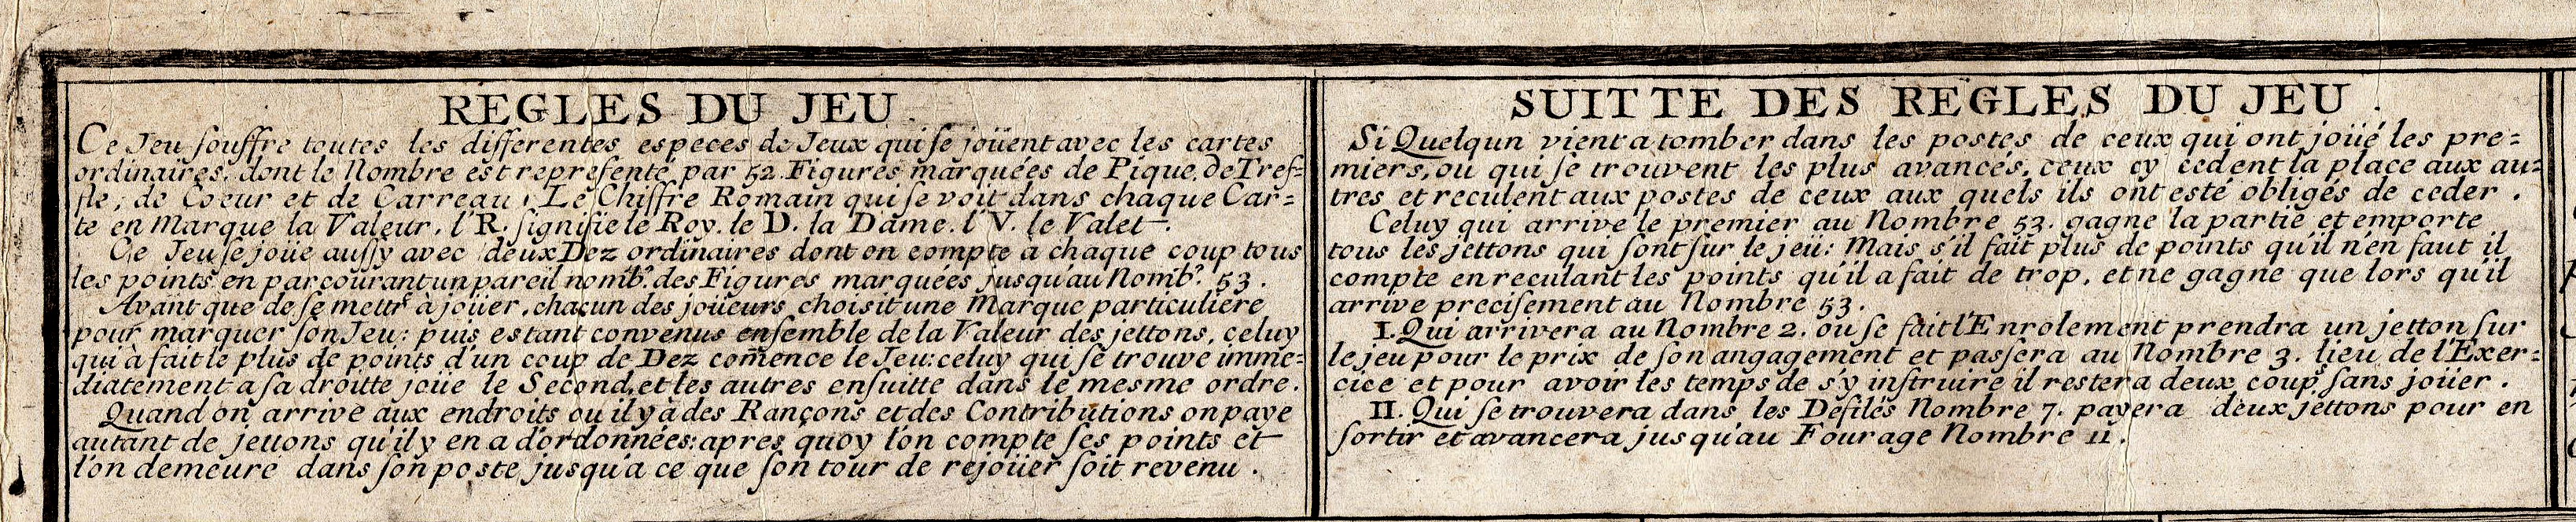 REGLES DU JEU
Ce Jeu souffre toutes les differentes especes de Jeux qui se joüent avec les cartes
ordinaires, dont le Nombre est represente par 52. Figures marquées de Pique, de Tref=
fle, de Coeur et de Carreau, Le Chiffre Romain qui se voit dans chaque Car=
te en Marque la Valeur, l'R. signifie le Roy. le D. la Dame. l'V. le Valet.
Ce Jeu se joüe aussy avec deux Dez ordinaires dont on compte a chaque coup tous
les points en parcourant un pareil nombr. des Figures marquées jusqu'au Nombr. 53.
Avant que de se mettr à joüer, chacun des joüeurs choisit une Marque particuliere
pour marquer son Jeu: puis estant convenus ensemble de la Valeur des jettons, celuy
qui à fait le plus de points d'un coup de Dez com̃ence le Jeu: celuy qui se trouve imme=
diatement a sa droitte joüe le Second, et les autres ensuitte dans le mesme ordre.
Quand on arrive aux endroits ou il y à des Rançons et des Contributions on paye
autant de jettons qu'il y en a d'ordonnées: apres quoy l'on compte ses points et
l'on demeure dans son poste jusqu'a ce que son tour de rejoüer soit revenu.
SUITTE DES REGLES DU JEU.
Si Quelqun vient a tomber dans les postes de ceux qui ont joüé les pre=
miers, ou qui se trouvent les plus avancés, ceux cy cedent la place aux au=
tres et reculent aux postes de ceux aux quels ils ont esté obligés de ceder.
Celuy qui arrive le premier au Nombre 53. gagne la partie et emporte
tous les jettons qui sont sur le jeu: Mais s'il fait plus de points qu'il n'en faut il
compte en reculant les points qu'il a fait de trop, et ne gagne que lors qu'il
arrive precisement au Nombre 53.
I. Qui arrivera au Nombre 2. ou se fait l'Enrolement prendra un jetton sur
le jeu pour le prix de son angagement et passera au Nombre 3. lieu de l'Exer=
cice et pour avoir les temps de s'y instruire il restera deux coups sans joüer.
II. Qui se trouvera dans les Defilés Nombre 7. payera deux jettons pour en
sortir et avancera jusqu'au Fourage Nombre 11.